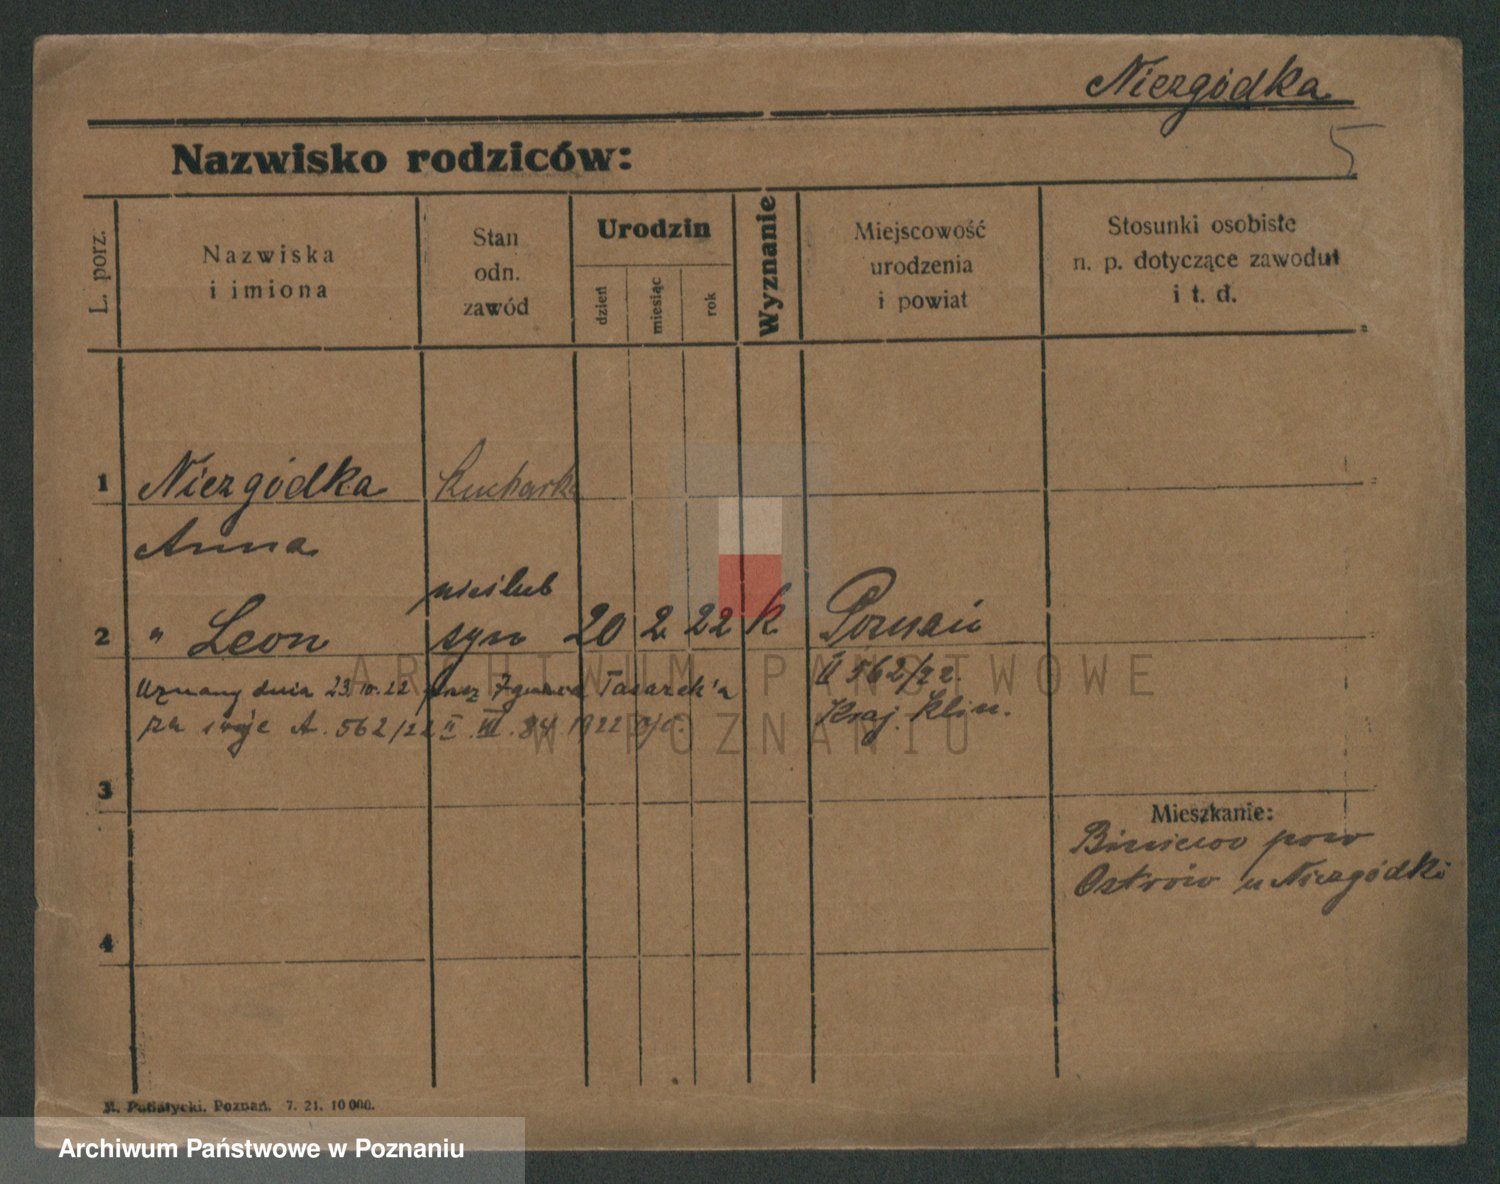 Niezgódka
5
Nazwisko rodziców:
L. porz.
Nazwiska
i imiona
Stan
odn.
zawód
Urodzin
dzień
miesiąc
rok
Wyznanie
Miejscowość
urodzenia
i powiat
Stosunki osobiste
n. p. dotyczące zawodut
i t. d.
1 Niezgódka Kucharka
Anna
nieślub
2 " Leon syn 20 2 22 k Poznań
Uznany dnia 23.10.22 przez Tatarek'a
za swoje A. 562/22 II. VII. 84 1922
U 562/22.
Kraj. Klin.
3
Mieszkanie:
Biniewo pow
Ostrów u Niezgódki
4
Poznań. 7. 21. 10 000.
ARCHIWUM PAŃSTWOWE
W POZNANIU
Archiwum Państwowe w Poznaniu